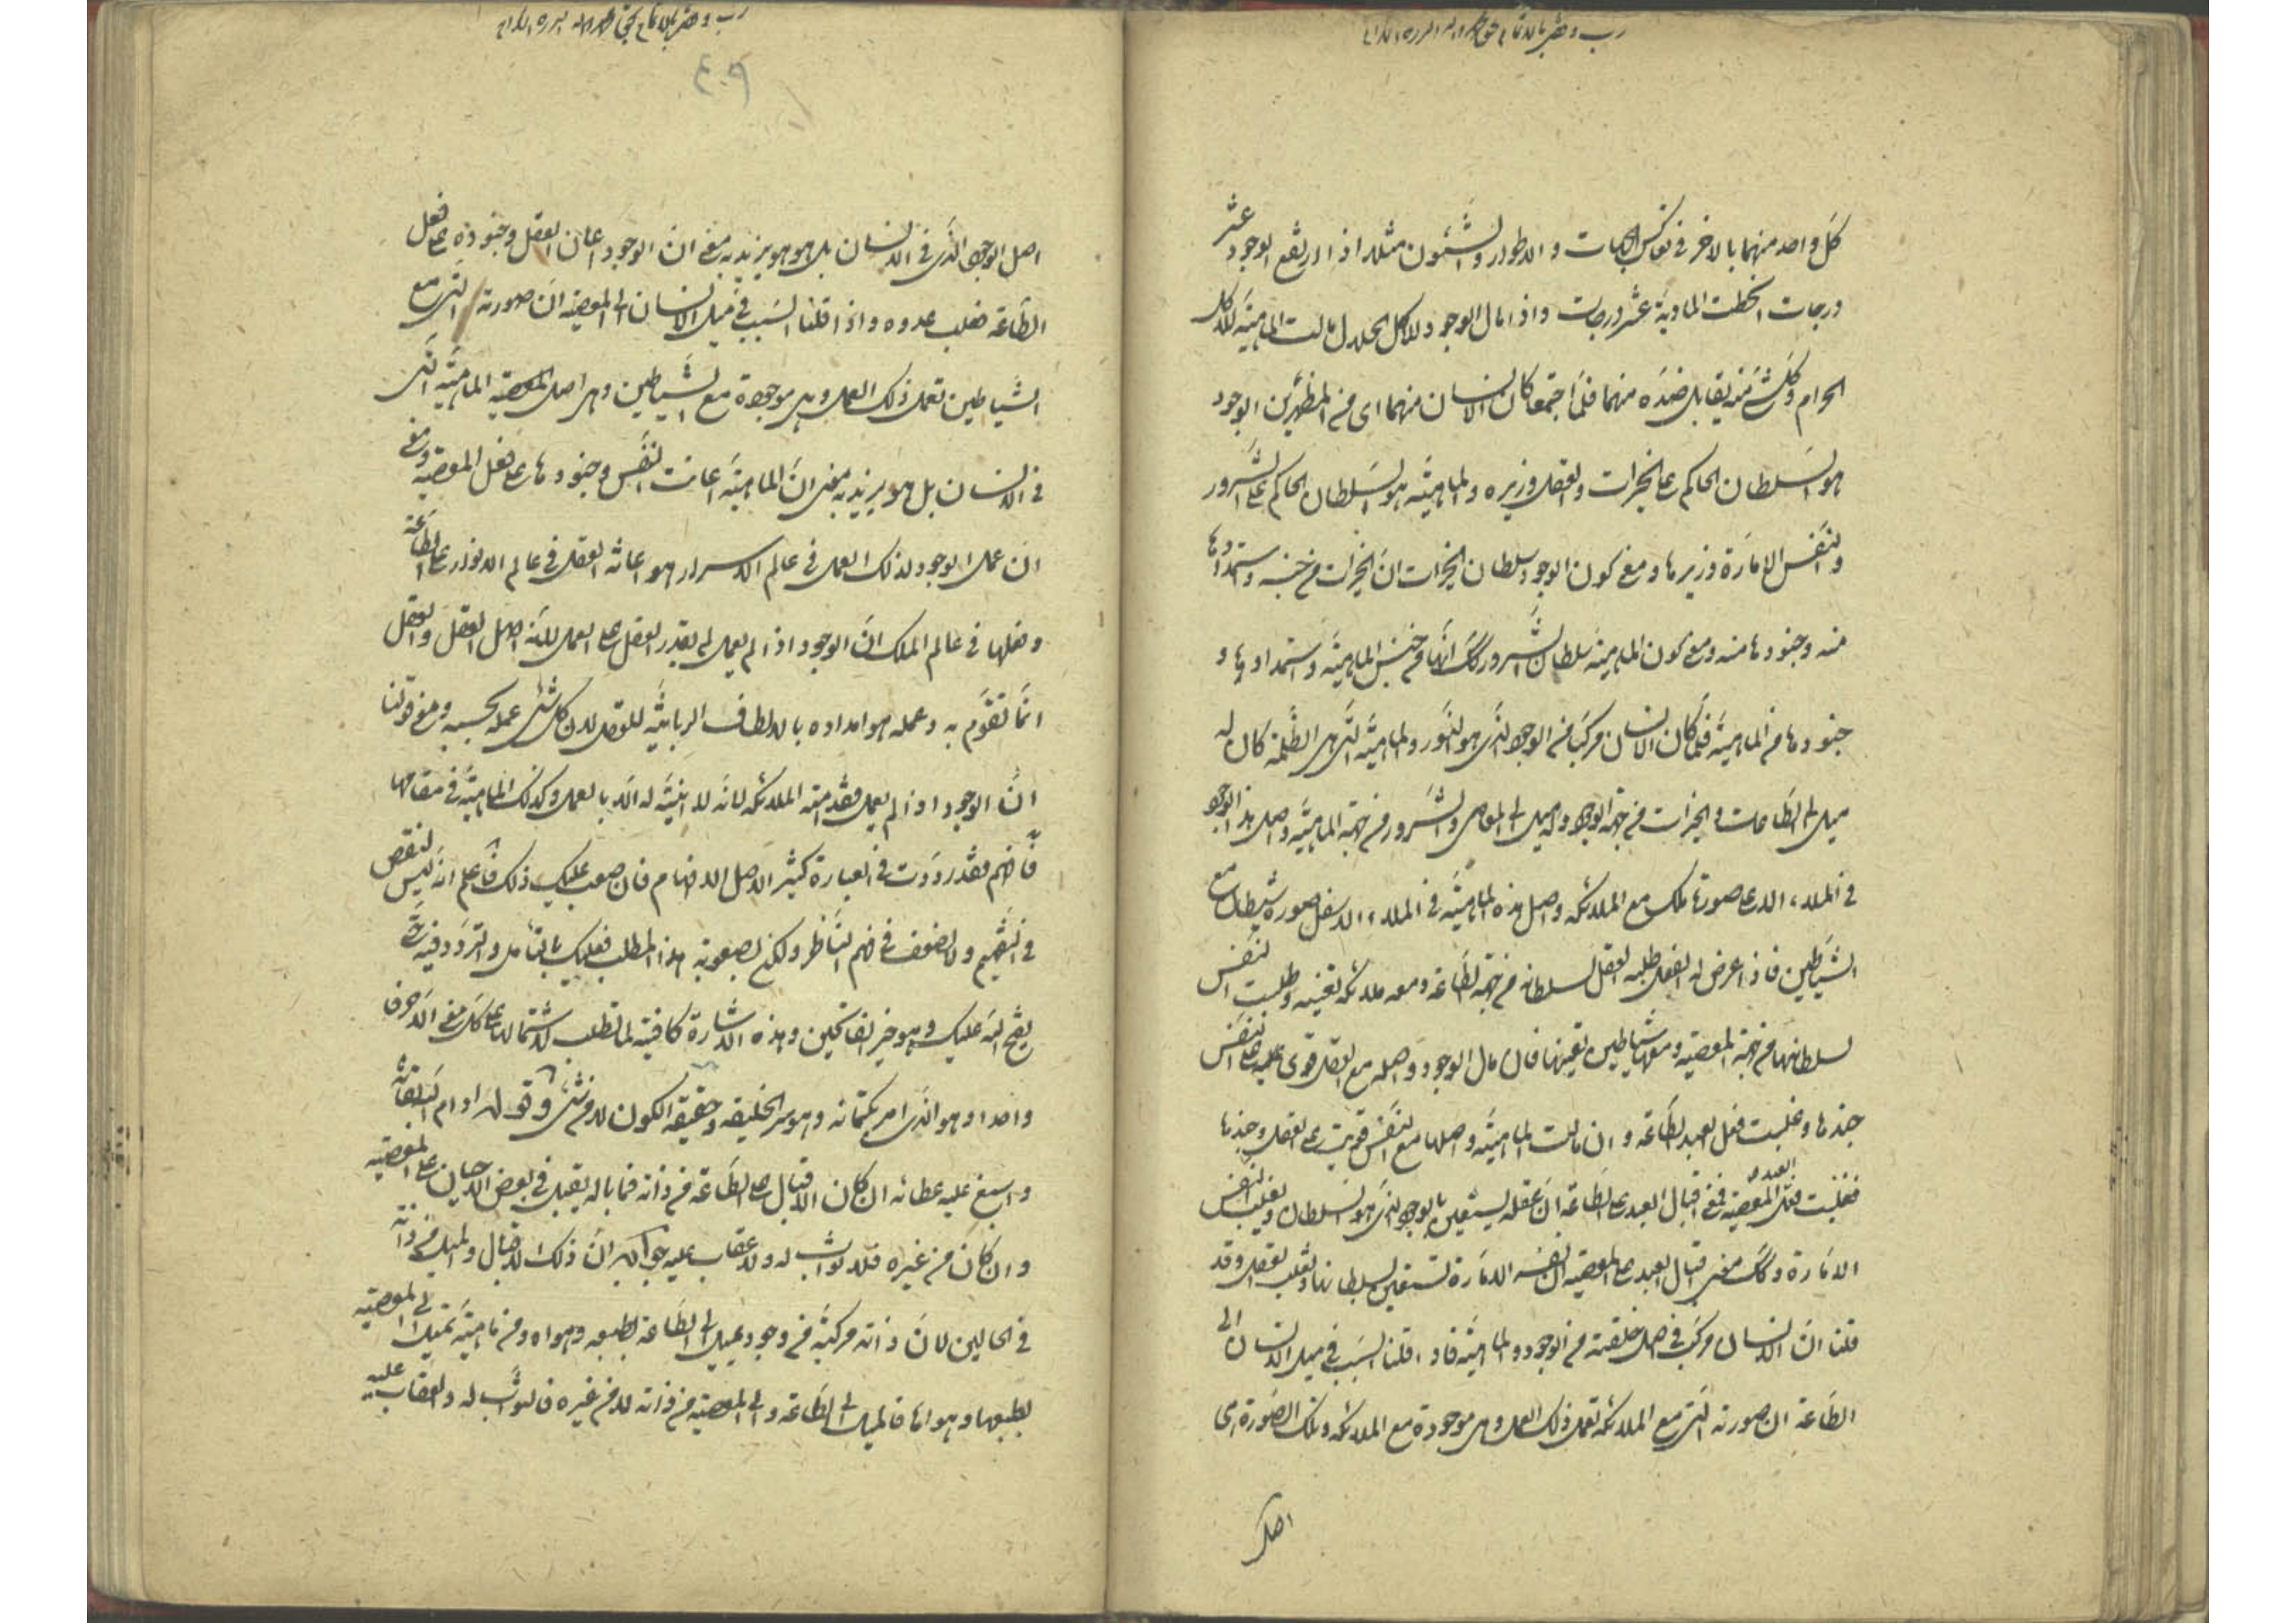 كل واحد منهما بالاخر في تعاكس الجهات و الاطوار والشئون مثلا اذا ارتفع الوجود عشر
درجات انحطت الماهية عشر درجات واذا مال الوجود للاكل الحلال مالت الماهية للاكل
الحرام وكل شئ منه يقابل ضده منهما فلما اجتمعا كان الانسان منهما اى من المظهرين الوجود
هو السلطان الحاكم على الخيرات والعقل وزيره والماهية هو السلطان الحاكم على الشرور
والنفس الامارة وزيرها ومعنى كون الوجود سلطان الخيرات ان الخيرات من جنسه واستمدادها
منه وجنودها منه ومعنى كون الماهية سلطان الشرور انها من جنس الماهية واستمدادها و
جنودها من الماهية فلما كان الانسان مركبا من الوجود الذى هو النور والماهية التى هى الظلمة كان له
ميل الى الطاعات والخيرات من جهة الوجود وله ميل الى المعاصى والشرور من جهة الماهية واصل هذا الوجود
في الملاء الاعلى صورة ملك مع الملائكة واصل هذه الماهية في الملاء الاسفل صورة شيطان مع
الشياطين فاذا عرض له الفعل طلبه العقل لسلطانه من جهة الطاعة ومعه ملائكة تعينه وطلبت النفس
لسلطانها من جهة المعصية ومعها شياطين تعينها فان مال الوجود واصله مع العقل قوى على النفس
جندها وغلبت فعل العبد الطاعة و ان مالت الماهية واصلها مع النفس قويت على العقل وجندها
فغلبت فعل العبد المعصية فمعنى اقبال العبد على الطاعة ان عقله يستعين بالوجود الذى هو السلطان ويغلب النفس
الامارة وكك معنى اقبال العبد على المعصية ان نفسه الامارة تستعين بسلطانها وتغلب العقل وقد
قلنا ان الانسان مركب في اصل خلقته من الوجود والماهية فاذا قلنا السبب في ميل الانسان الى
الطاعة ان صورته التى مع الملائكة تعمل ذلك العمل وهى موجودة مع الملائكة وتلك الصورة هى
اصل
٤٠٩
اصل الوجود الذى في الانسان بل هو هو يزيد به معنى ان الوجود اعان العقل وجنوده على فعل
الطاعة فغلب عدوه واذا قلنا السبب في ميل الانسان الى المعصية ان صورته التى مع
الشياطين تعمل ذلك العمل وهى موجودة مع الشياطين وهى اصل المعصية الماهية التى
في الانسان بل هو يزيد به معنى ان الماهية اعانت النفس وجنودها على فعل المعصية ومعنى
ان عمل الوجود لذلك العمل في عالم الاسرار هو اعانة العقل في عالم الانوار على الطاعة
وفعلها في عالم الملك ان الوجود اذا لم يعمل لم يقدر العقل على العمل لانه اصل العقل والعقل
انما تقوم به وعمله هو امداده بالالطاف الربانية للعقل لان كل شئ عمله بحسبه ومعنى قولنا
ان الوجود اذا لم يعمل فقد مته الملائكة لانه لا انية له الا بالعمل وكذلك الماهية في مقامها
فافهم فقد رددت في العبارة كثيرا لاجل الافهام فان صعب عليك ذلك فاعلم انه ليس لنقص
في التفهيم ولا لضعف في فهم الناظر ولكن لصعوبة هذا المطلب فعليك بالتامل والتردد فيه حتى
يفتح الله عليك وهو خير الفاتحين وهذه الاشارة كافية لما تطلب لاشتمالها على كل معنى الا حرفا
واحدا وهو الذى امر بكتمانه وهو سر الخليقة وحقيقة الكون لا من شئ وقوله ادام الله بقائه
واسبغ عليه عطائه ان كان الاقبال على الطاعة من ذاته فما باله يقبل في بعض الاحيان على المعصية
وان كان من غيره فلا ثواب له ولا عقاب عليه جوابه ان ذلك الاقبال والميل من ذاته
في الحالين لان ذاته مركبة من وجود يميل الى الطاعة بطبعه وهواه ومن ماهية تميل الى المعصية
بطبعها وهواها فالميل الى الطاعة والى المعصية من ذاته لا من غيره فالثواب له والعقاب عليه